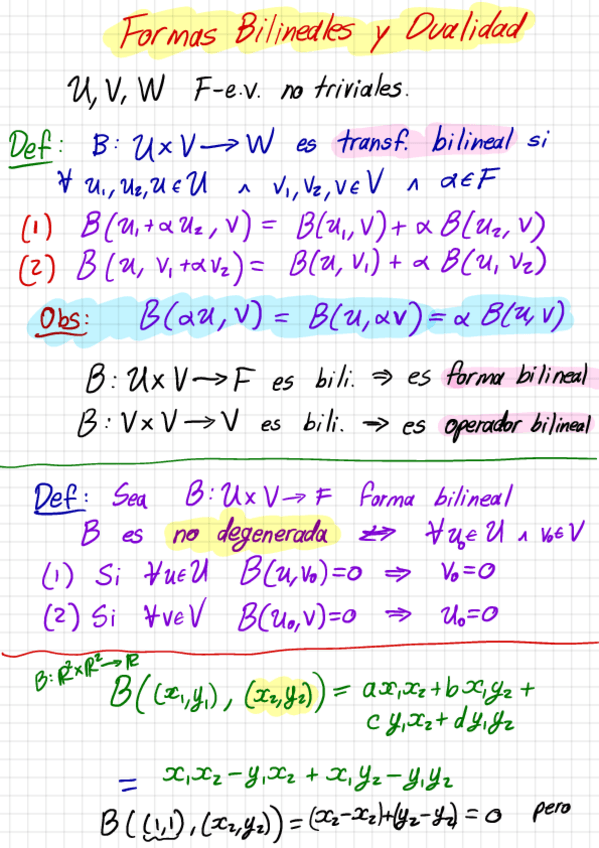 Formas Bilineales y Dualidad
U, V, W F-e.v. no triviales.
Def: B: U×V→W es transf. bilineal si
∀ u₁, u₂, u ∈ U ∧ v₁, v₂, v ∈ V ∧ α ∈ F
(1) B(u₁+αu₂, v) = B(u₁, v) + α B(u₂, v)
(2) B(u, v₁+αv₂) = B(u, v₁) + α B(u, v₂)
Obs: B(αu, v) = B(u, αv) = α B(u, v)
B: U×V→F es bili. ⇒ es forma bilineal
B: V×V→V es bili. ⇒ es operador bilineal
Def: Sea B: U×V→F forma bilineal
B es no degenerada ⇔ ∀ u₀∈U ∧ v₀∈V
(1) Si ∀u∈U B(u, v₀)=0 ⇒ v₀=0
(2) Si ∀v∈V B(u₀, v)=0 ⇒ u₀=0
B: ℝ²×ℝ²→ℝ
B((x₁,y₁), (x₂,y₂)) = ax₁x₂+bx₁y₂+
cy₁x₂+dy₁y₂
= x₁x₂-y₁x₂+x₁y₂-y₁y₂
B((1,1),(x₂,y₂))=(x₂-x₂)+(y₂-y₂)=0 pero